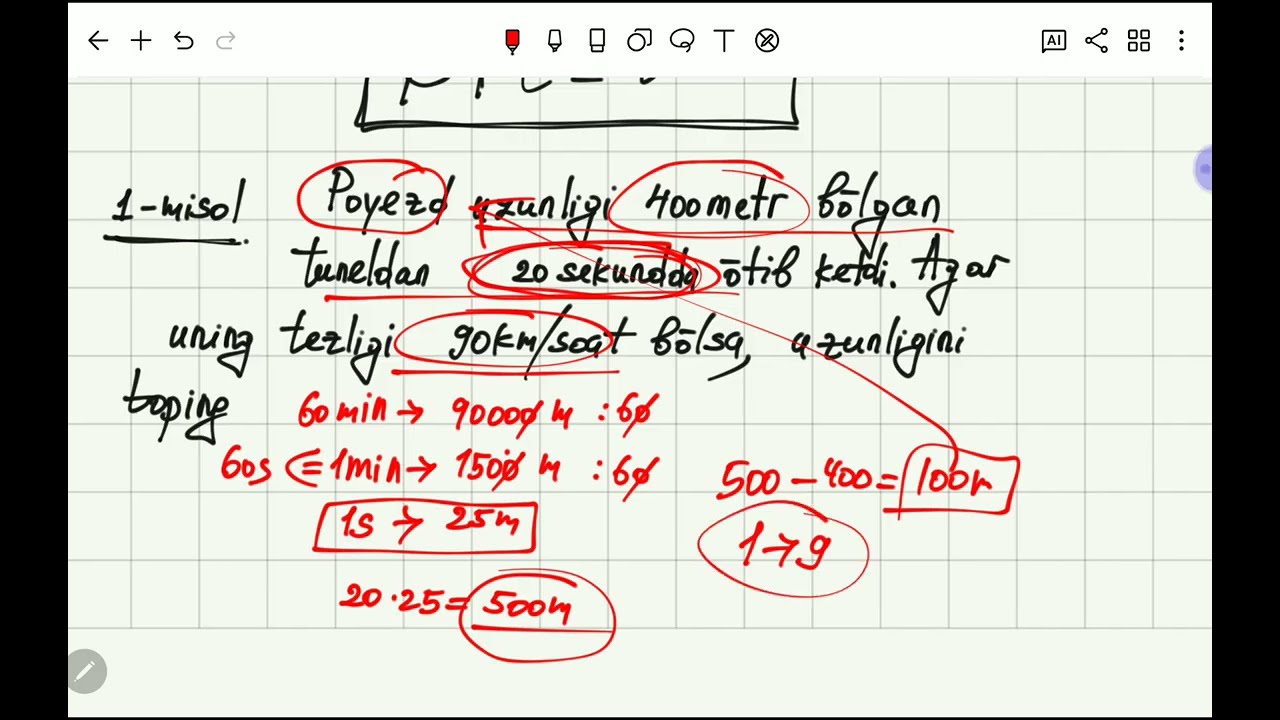 AI
1-misol Poyezd uzunligi 400metr bōlgan
tuneldan 20 sekundda ōtib ketdi. Agar
uning tezligi 90km/soat bōlsa, uzunligini
toping
60min → 90000 m : 60
60s <= 1min → 1500 m : 60
1s → 25m
20 · 25 = 500m
500 - 400 = 100m
1 → 9